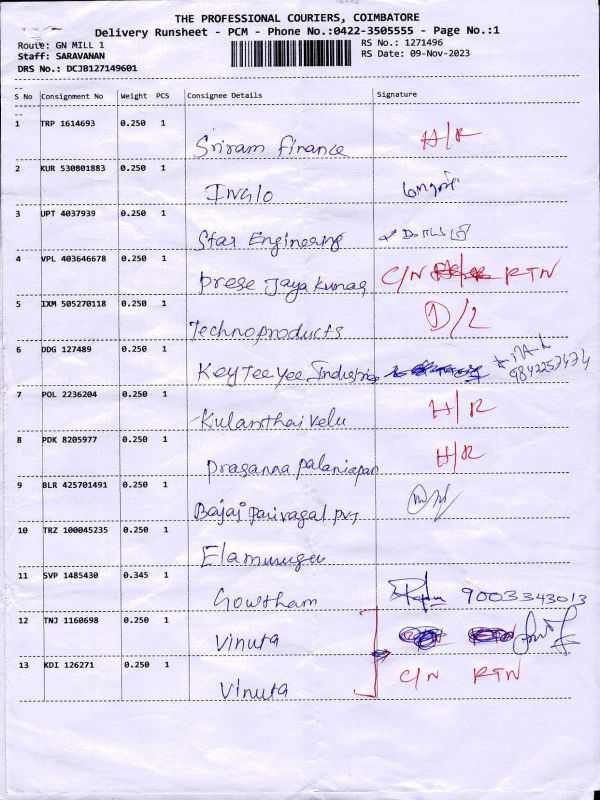 THE PROFESSIONAL COURIERS, COIMBATORE
Delivery Runsheet - PCM - Phone No.:0422-3505555 - Page No.:1
Route: GN MILL 1 RS No.: 1271496
Staff: SARAVANAN RS Date: 09-Nov-2023
DRS No.: DCJB127149601
S No Consignment No Weight PCS Consignee Details Signature
1 TRP 1614693 0.250 1 Sriram finance H/R
2 KUR 530801883 0.250 1 INGlo
3 UPT 4037939 0.250 1 Star Engineering
4 VPL 403646678 0.250 1 prese Jaya kumar C/N RTN
5 IXM 505270118 0.250 1 Technoproducts D/L
6 DDG 127489 0.250 1 Key Tee yee Industries 9842257474
7 POL 2236204 0.250 1 Kulanthai velu H/R
8 PDK 8205977 0.250 1 prasanna palaniapan H/R
9 BLR 425701491 0.250 1 Bajaj parivagal pvt
10 TRZ 100045235 0.250 1 Elamurugu
11 SVP 1485430 0.345 1 Gowtham 9003343013
12 TNJ 1160698 0.250 1 Vinuta
13 KDI 126271 0.250 1 Vinuta C/N RTN